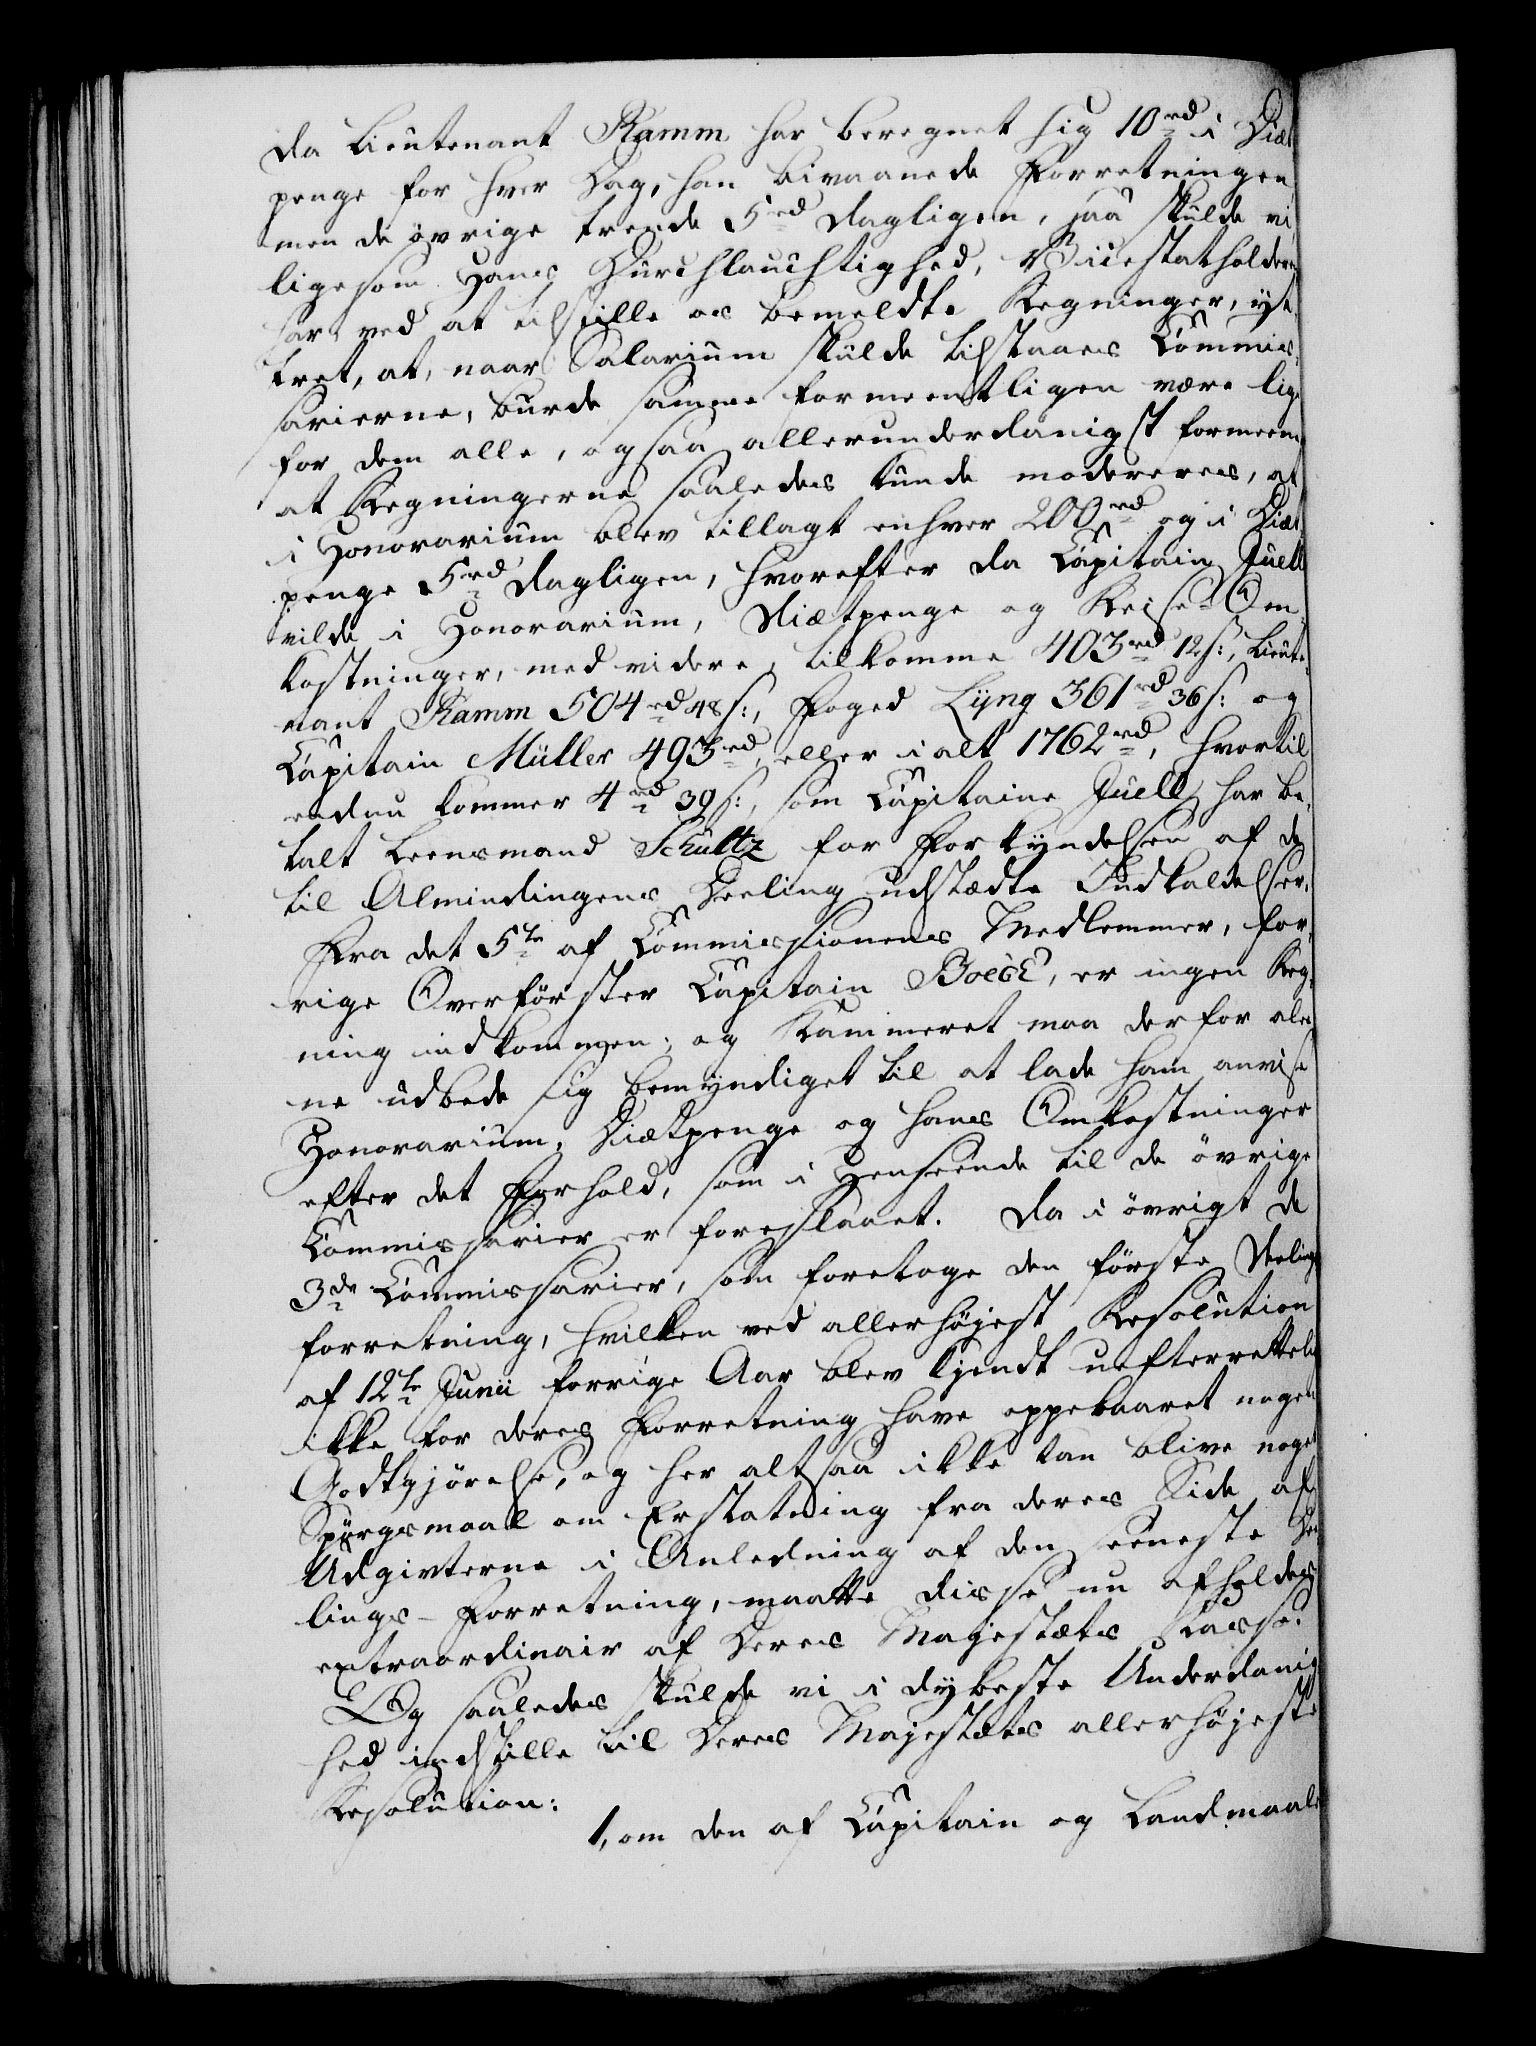 da Lieutenant Ramm har beregnet sig 10 rd i Diæt
penge for hver Dag, han bivaanede Forretningen
men de øvrige trende 5 rd dagligen, saa skulde vi
ligesom Hans Durchlauchtighed, Vicestatholderen
har ved at tilstille os bemeldte Regninger, ytt
tret, at, naar Salarium skulde tilstaaes Commis¬
sarierne, burde samme formeentligen være lige
for dem alle, ogsaa allerunderdanigst formeene
at Regningerne saaledes kunde modereres, at
i Honorarium blev tillagt enhver 200 rd og i Diæt
penge 5 rd dagligen, hvorefter da Capitain Juell
vilde i Honorarium, Diætpenge og Reise-Om¬
kostninger, med videre, tilkomme 403 rd 12 s:, Lieute¬
nant Ramm 504 rd 48 s:, Foged Lyng 361 rd 36 s: og
Capitain Müller 493 rd, eller i alt 1762 rd, hvortil
endnu kommer 4 rd 39 s:, som Capitaine Juell har be¬
talt Leensmand Schultz for Forkyndelsen af de
til Almindingens Deeling udstædte Indkaldelser.
Fra det 5te af Commissionens Medlemmer, for¬
rige Overförster Capitain Boeck, er ingen Reg¬
ning indkommen; og Kammeret maa derfor ale
ne udbede sig bemyndiget til at lade ham anvise
Honorarium, Diætpenge og hans Omkostninger
efter det Forhold, som i Henseende til de övrige
Commissarier er foreslaaet. Da i övrigt de
3de Commissarier, som foretoge den förste Deelings
forretning, hvilken ved allerhöjest Resolution
af 12te Junii forrige Aar blev kjendt uefterrettelig
ikke for deres Forretning have oppebaaret nogen
Godtgjörelse, og her altsaa ikke kan blive noget
Spörgsmaal om Erstatning fra deres Side af
Udgivterne i Anledning af den seeneste Dee
lings-Forretning, maatte disse nu afholdes
extraordinair af Deres Majestæts Kasse.
Og saaledes skulde vi i dybeste Underdanig
hed indstille til Deres Majestæts allerhöjeste
Resolution:
1, om den af Capitain og Landmaale